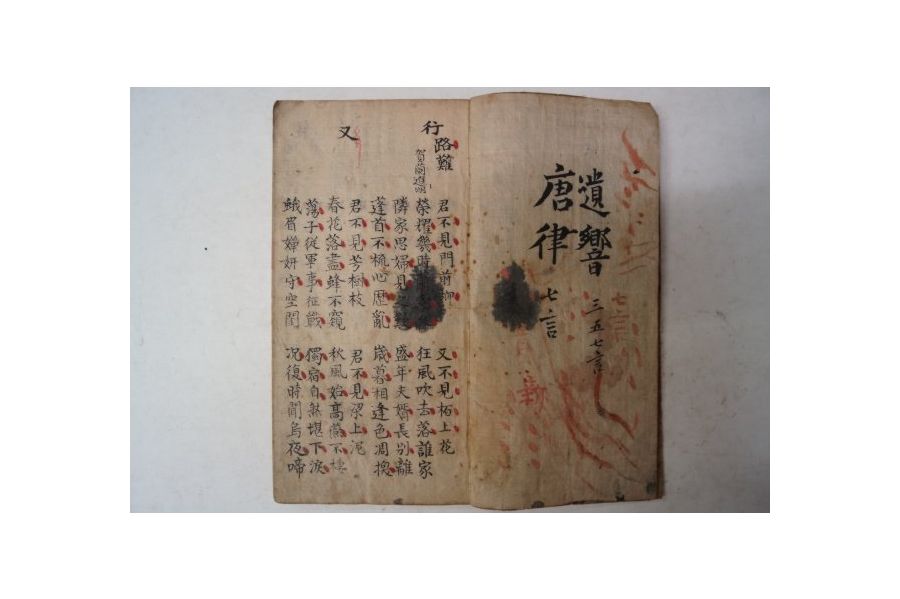 七言
遺響 三五七言
唐律 七言
新
行路難
賀蘭進明
君不見門前柳 又不見栢上花
榮耀幾時 狂風吹去落誰家
隣家思婦見 盛年夫婿長別離
蓬首不梳心歷亂 歲暮相逢色凋換
又
君不見芳樹枝 君不見梁上泥
春花落盡蜂不窺 秋風始高燕不棲
蕩子從軍事征戰 獨宿自然堪下淚
蛾眉嬋妍守空閨 况復時聞烏夜啼